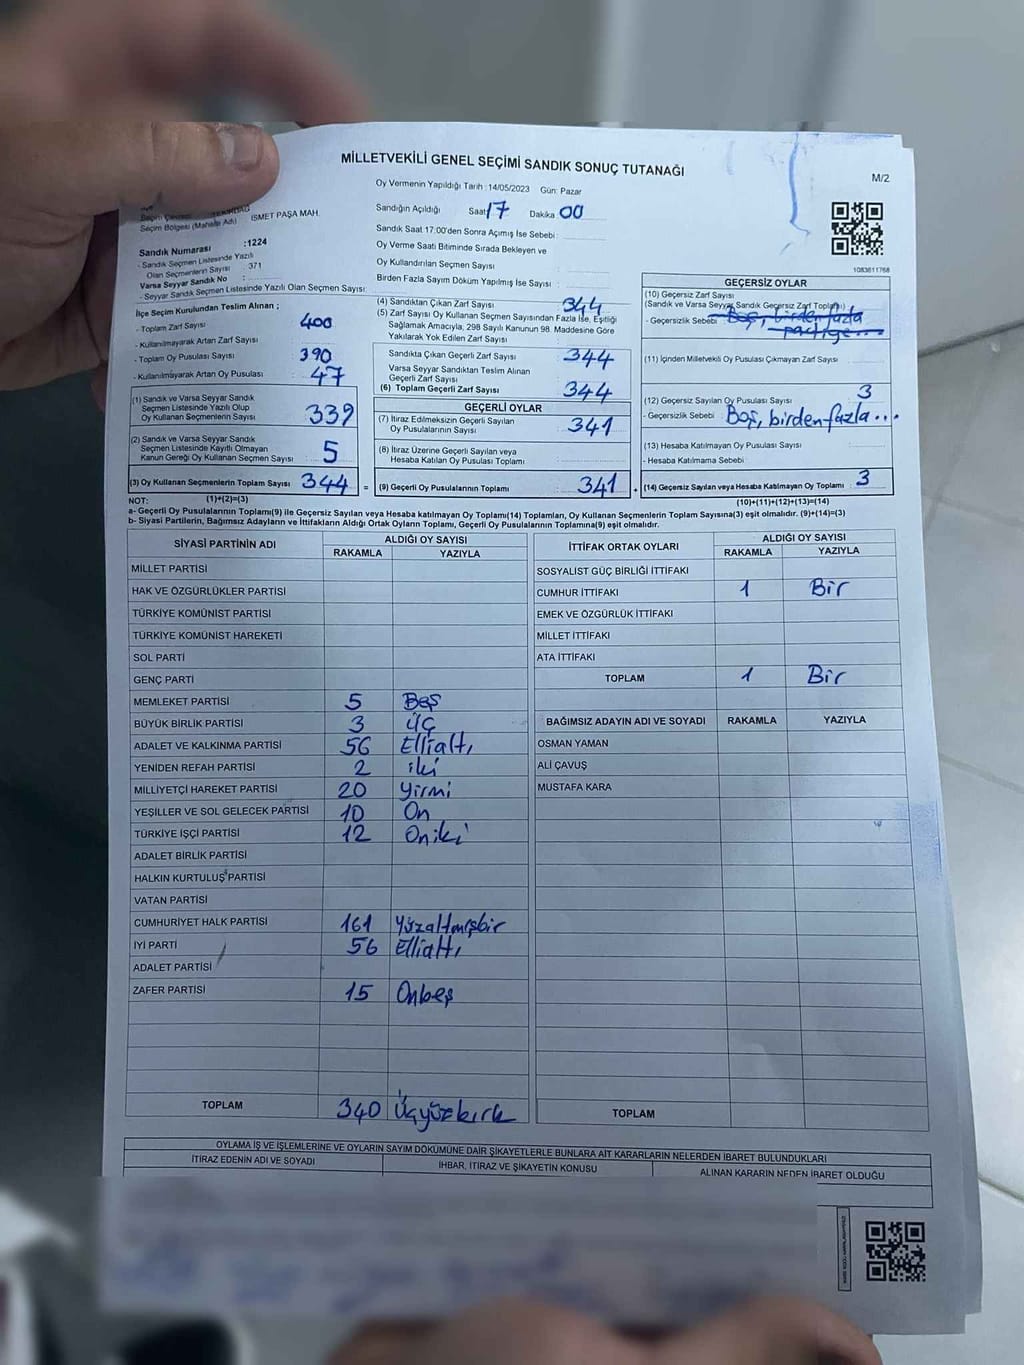 MİLLETVEKİLİ GENEL SEÇİMİ SANDIK SONUÇ TUTANAĞI
M/2
Oy Vermenin Yapıldığı Tarih : 14/05/2023 Gün: Pazar
Seçim Bölgesi (Mahalle Adı) İSMET PAŞA MAH.
Sandığın Açıldığı Saat 17 Dakika 00
Sandık Saat 17:00'den Sonra Açımış İse Sebebi :
Oy Verme Saati Bitiminde Sırada Bekleyen ve
Oy Kullandırılan Seçmen Sayısı
Birden Fazla Sayım Döküm Yapılmış İse Sayısı :
Sandık Numarası :1224
- Sandık Seçmen Listesinde Yazılı
Olan Seçmenlerin Sayısı 371
Varsa Seyyar Sandık No :
- Seyyar Sandık Seçmen Listesinde Yazılı Olan Seçmen Sayısı:
1083611768
İlçe Seçim Kurulundan Teslim Alınan ;
- Toplam Zarf Sayısı 400
- Kullanılmayarak Artan Zarf Sayısı
- Toplam Oy Pusulası Sayısı 390
- Kullanılmayarak Artan Oy Pusulası 47
(1) Sandık ve Varsa Seyyar Sandık
Seçmen Listesinde Yazılı Olup
Oy Kullanan Seçmenlerin Sayısı 339
(2) Sandık ve Varsa Seyyar Sandık
Seçmen Listesinde Kayıtlı Olmayan
Kanun Gereği Oy Kullanan Seçmen Sayısı 5
(3) Oy Kullanan Seçmenlerin Toplam Sayısı 344 =
(4) Sandıktan Çıkan Zarf Sayısı 344
(5) Zarf Sayısı Oy Kullanan Seçmen Sayısından Fazla İse, Eşitliği
Sağlamak Amacıyla, 298 Sayılı Kanunun 98. Maddesine Göre
Yakılarak Yok Edilen Zarf Sayısı
Sandıkta Çıkan Geçerli Zarf Sayısı 344
Varsa Seyyar Sandıktan Teslim Alınan
Geçerli Zarf Sayısı
(6) Toplam Geçerli Zarf Sayısı 344
GEÇERLİ OYLAR
(7) İtiraz Edilmeksizin Geçerli Sayılan
Oy Pusulalarının Sayısı 341
(8) İtiraz Üzerine Geçerli Sayılan veya
Hesaba Katılan Oy Pusulası Toplamı
(9) Geçerli Oy Pusulalarının Toplamı 341 +
GEÇERSİZ OYLAR
(10) Geçersiz Zarf Sayısı
(Sandık ve Varsa Seyyar Sandık Geçersiz Zarf Toplamı)
- Geçersizlik Sebebi Boş, birden fazla
partiye...
(11) İçinden Milletvekili Oy Pusulası Çıkmayan Zarf Sayısı
(12) Geçersiz Sayılan Oy Pusulası Sayısı 3
- Geçersizlik Sebebi Boş, birden fazla...
(13) Hesaba Katılmayan Oy Pusulası Sayısı
- Hesaba Katılmama Sebebi
(14) Geçersiz Sayılan veya Hesaba Katılmayan Oy Toplamı 3
NOT: (1)+(2)=(3) (10)+(11)+(12)+(13)=(14)
a- Geçerli Oy Pusulalarının Toplamı(9) ile Geçersiz Sayılan veya Hesaba katılmayan Oy Toplamı(14) Toplamları, Oy Kullanan Seçmenlerin Toplam Sayısına(3) eşit olmalıdır. (9)+(14)=(3)
b- Siyasi Partilerin, Bağımsız Adayların ve İttifakların Aldığı Ortak Oyların Toplamı, Geçerli Oy Pusulalarının Toplamına(9) eşit olmalıdır.
SİYASİ PARTİNİN ADI ALDIĞI OY SAYISI
RAKAMLA YAZIYLA
MİLLET PARTİSİ
HAK VE ÖZGÜRLÜKLER PARTİSİ
TÜRKİYE KOMÜNİST PARTİSİ
TÜRKİYE KOMÜNİST HAREKETİ
SOL PARTİ
GENÇ PARTİ
MEMLEKET PARTİSİ 5 Beş
BÜYÜK BİRLİK PARTİSİ 3 Üç
ADALET VE KALKINMA PARTİSİ 56 Ellialtı
YENİDEN REFAH PARTİSİ 2 iki
MİLLİYETÇİ HAREKET PARTİSİ 20 Yirmi
YEŞİLLER VE SOL GELECEK PARTİSİ 10 On
TÜRKİYE İŞÇİ PARTİSİ 12 Oniki
ADALET BİRLİK PARTİSİ
HALKIN KURTULUŞ PARTİSİ
VATAN PARTİSİ
CUMHURİYET HALK PARTİSİ 161 Yüzaltmışbir
İYİ PARTİ 56 Ellialtı
ADALET PARTİSİ
ZAFER PARTİSİ 15 Onbeş
TOPLAM 340 Üçyüzkırk
İTTİFAK ORTAK OYLARI ALDIĞI OY SAYISI
RAKAMLA YAZIYLA
SOSYALİST GÜÇ BİRLİĞİ İTTİFAKI
CUMHUR İTTİFAKI 1 Bir
EMEK VE ÖZGÜRLÜK İTTİFAKI
MİLLET İTTİFAKI
ATA İTTİFAKI
TOPLAM 1 Bir
BAĞIMSIZ ADAYIN ADI VE SOYADI RAKAMLA YAZIYLA
OSMAN YAMAN
ALİ ÇAVUŞ
MUSTAFA KARA
TOPLAM
OYLAMA İŞ VE İŞLEMLERİNE VE OYLARIN SAYIM DÖKÜMÜNE DAİR ŞİKAYETLERLE BUNLARA AİT KARARLARIN NELERDEN İBARET BULUNDUKLARI
İTİRAZ EDENİN ADI VE SOYADI İHBAR, İTİRAZ VE ŞİKAYETİN KONUSU ALINAN KARARIN NEDEN İBARET OLDUĞU